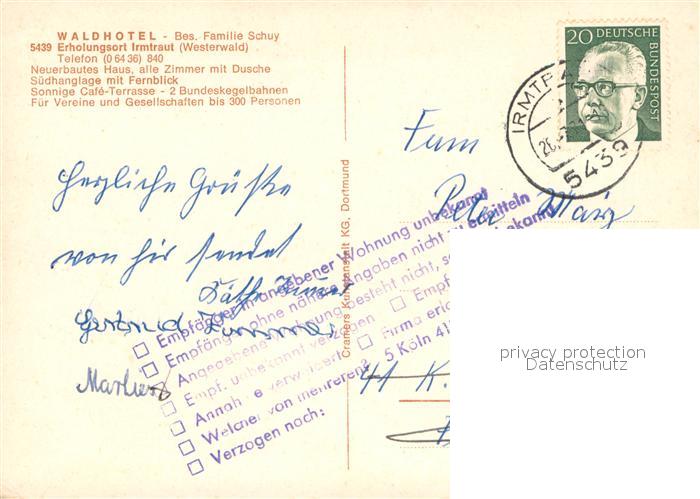 WALDHOTEL - Bes. Familie Schuy
5439 Erholungsort Irmtraut (Westerwald)
Telefon (0 64 36) 840
Neuerbautes Haus, alle Zimmer mit Dusche
Südhanglage mit Fernblick
Sonnige Café-Terrasse - 2 Bundeskegelbahnen
Für Vereine und Gesellschaften bis 300 Personen
20 DEUTSCHE
BUNDESPOST
IRMTRA
5439
Fam
Peter
herzliche Grüße
von hier sendet
Käthe
Gertrud
Marlies
Cramers Kunstanstalt KG, Dortmund
Empfänger in angebener Wohnung unbekannt
Empfänger ohne nähere Angaben nicht zu ermitteln
Angegebene besteht nicht,
Empf. unbekannt verzogen
Empf
Annahme verweigert
Firma
Welcher von mehreren?
5 Köln 41
Verzogen nach:
41 K.
privacy protection
Datenschutz